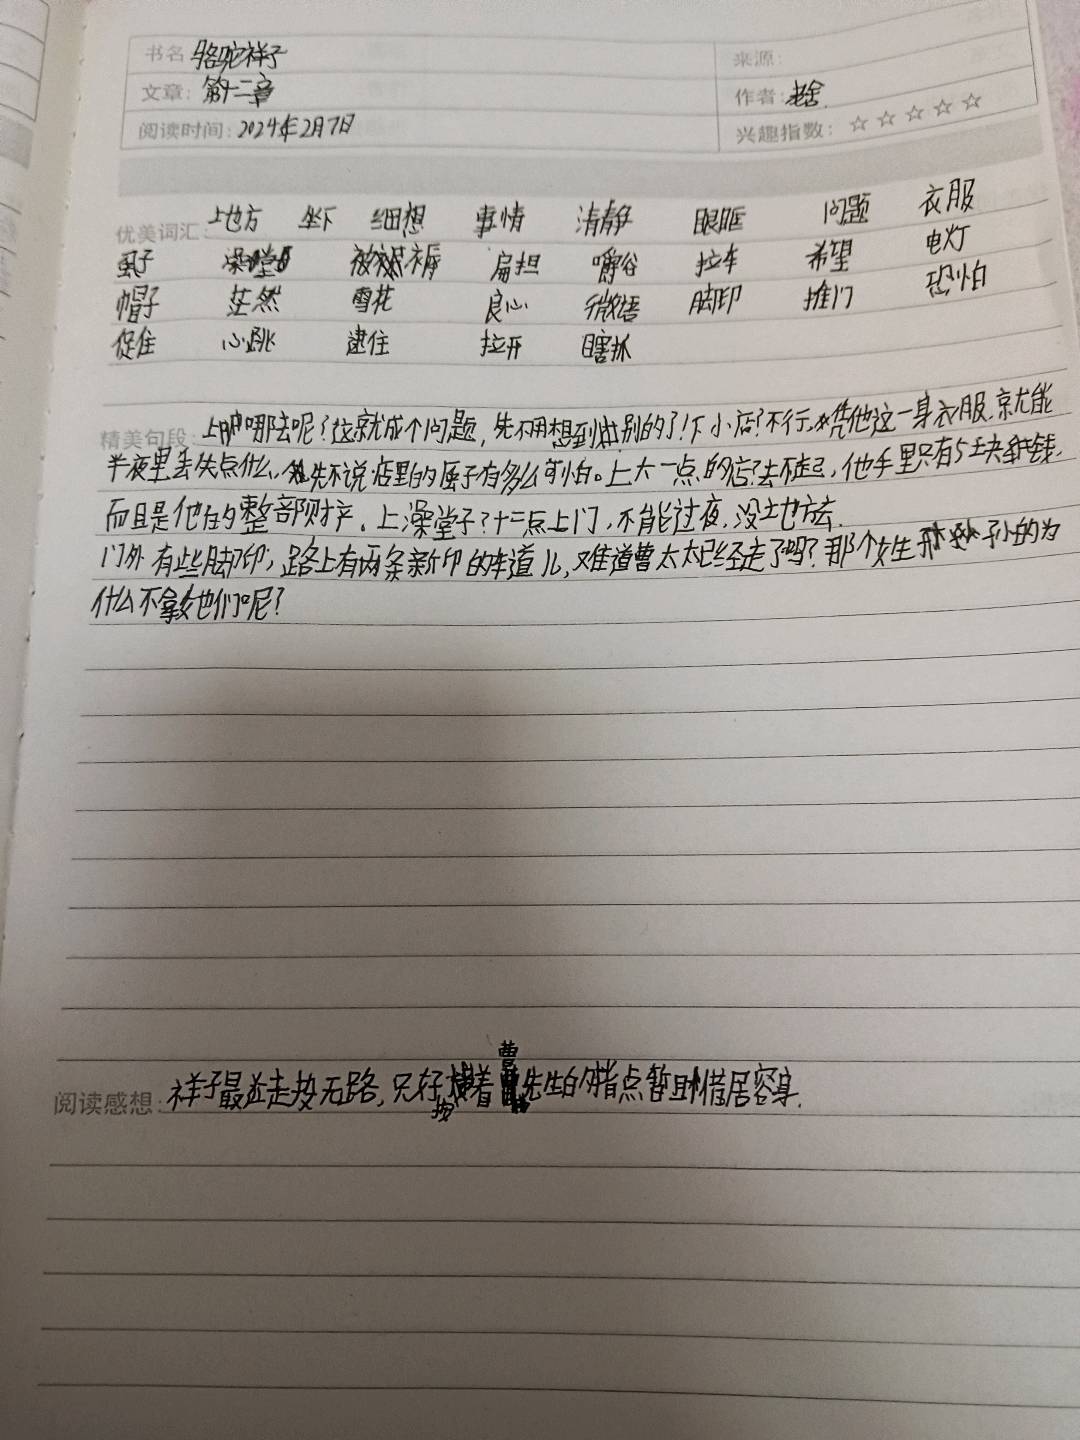 书名 骆驼祥子 来源：
文章：第十二章 作者：老舍
阅读时间：2024年2月7日 兴趣指数：☆☆☆☆☆
优美词汇： 地方 坐下 细想 事情 清静 眼眶 问题 衣服
虱子 澡堂 被褥 扁担 嚼谷 拉车 希望 电灯
帽子 茫然 雪花 良心 微语 脚印 推门 恐怕
促住 心跳 逮住 拉开 瞎抓
精美句段： 上哪去呢？这就成个问题，先不用想到别的了！下小店？不行，凭他这一身衣服，就能
半夜里丢失点什么，先不说店里的虱子有多么可怕。上大一点的店？去不起，他手里只有5块钱，
而且是他的整部财产。上澡堂子？十二点上门，不能过夜，没地方去.
门外有些脚印；路上有两条新印的车道儿，难道曹太太已经走了吗？那个女生 孙的为
什么不拿她们呢？
阅读感想：祥子最 走投无路，只好按着曹先生的 指点暂且借居 .